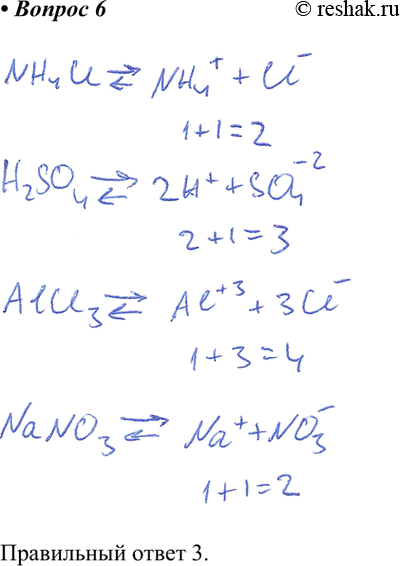 • Вопрос 6
© reshak.ru
NH₄Cl ⇄ NH₄⁺ + Cl⁻
1+1=2
H₂SO₄ ⇄ 2H⁺ + SO₄⁻²
2+1=3
AlCl₃ ⇄ Al⁺³ + 3Cl⁻
1+3=4
NaNO₃ ⇄ Na⁺ + NO₃⁻
1+1=2
Правильный ответ 3.